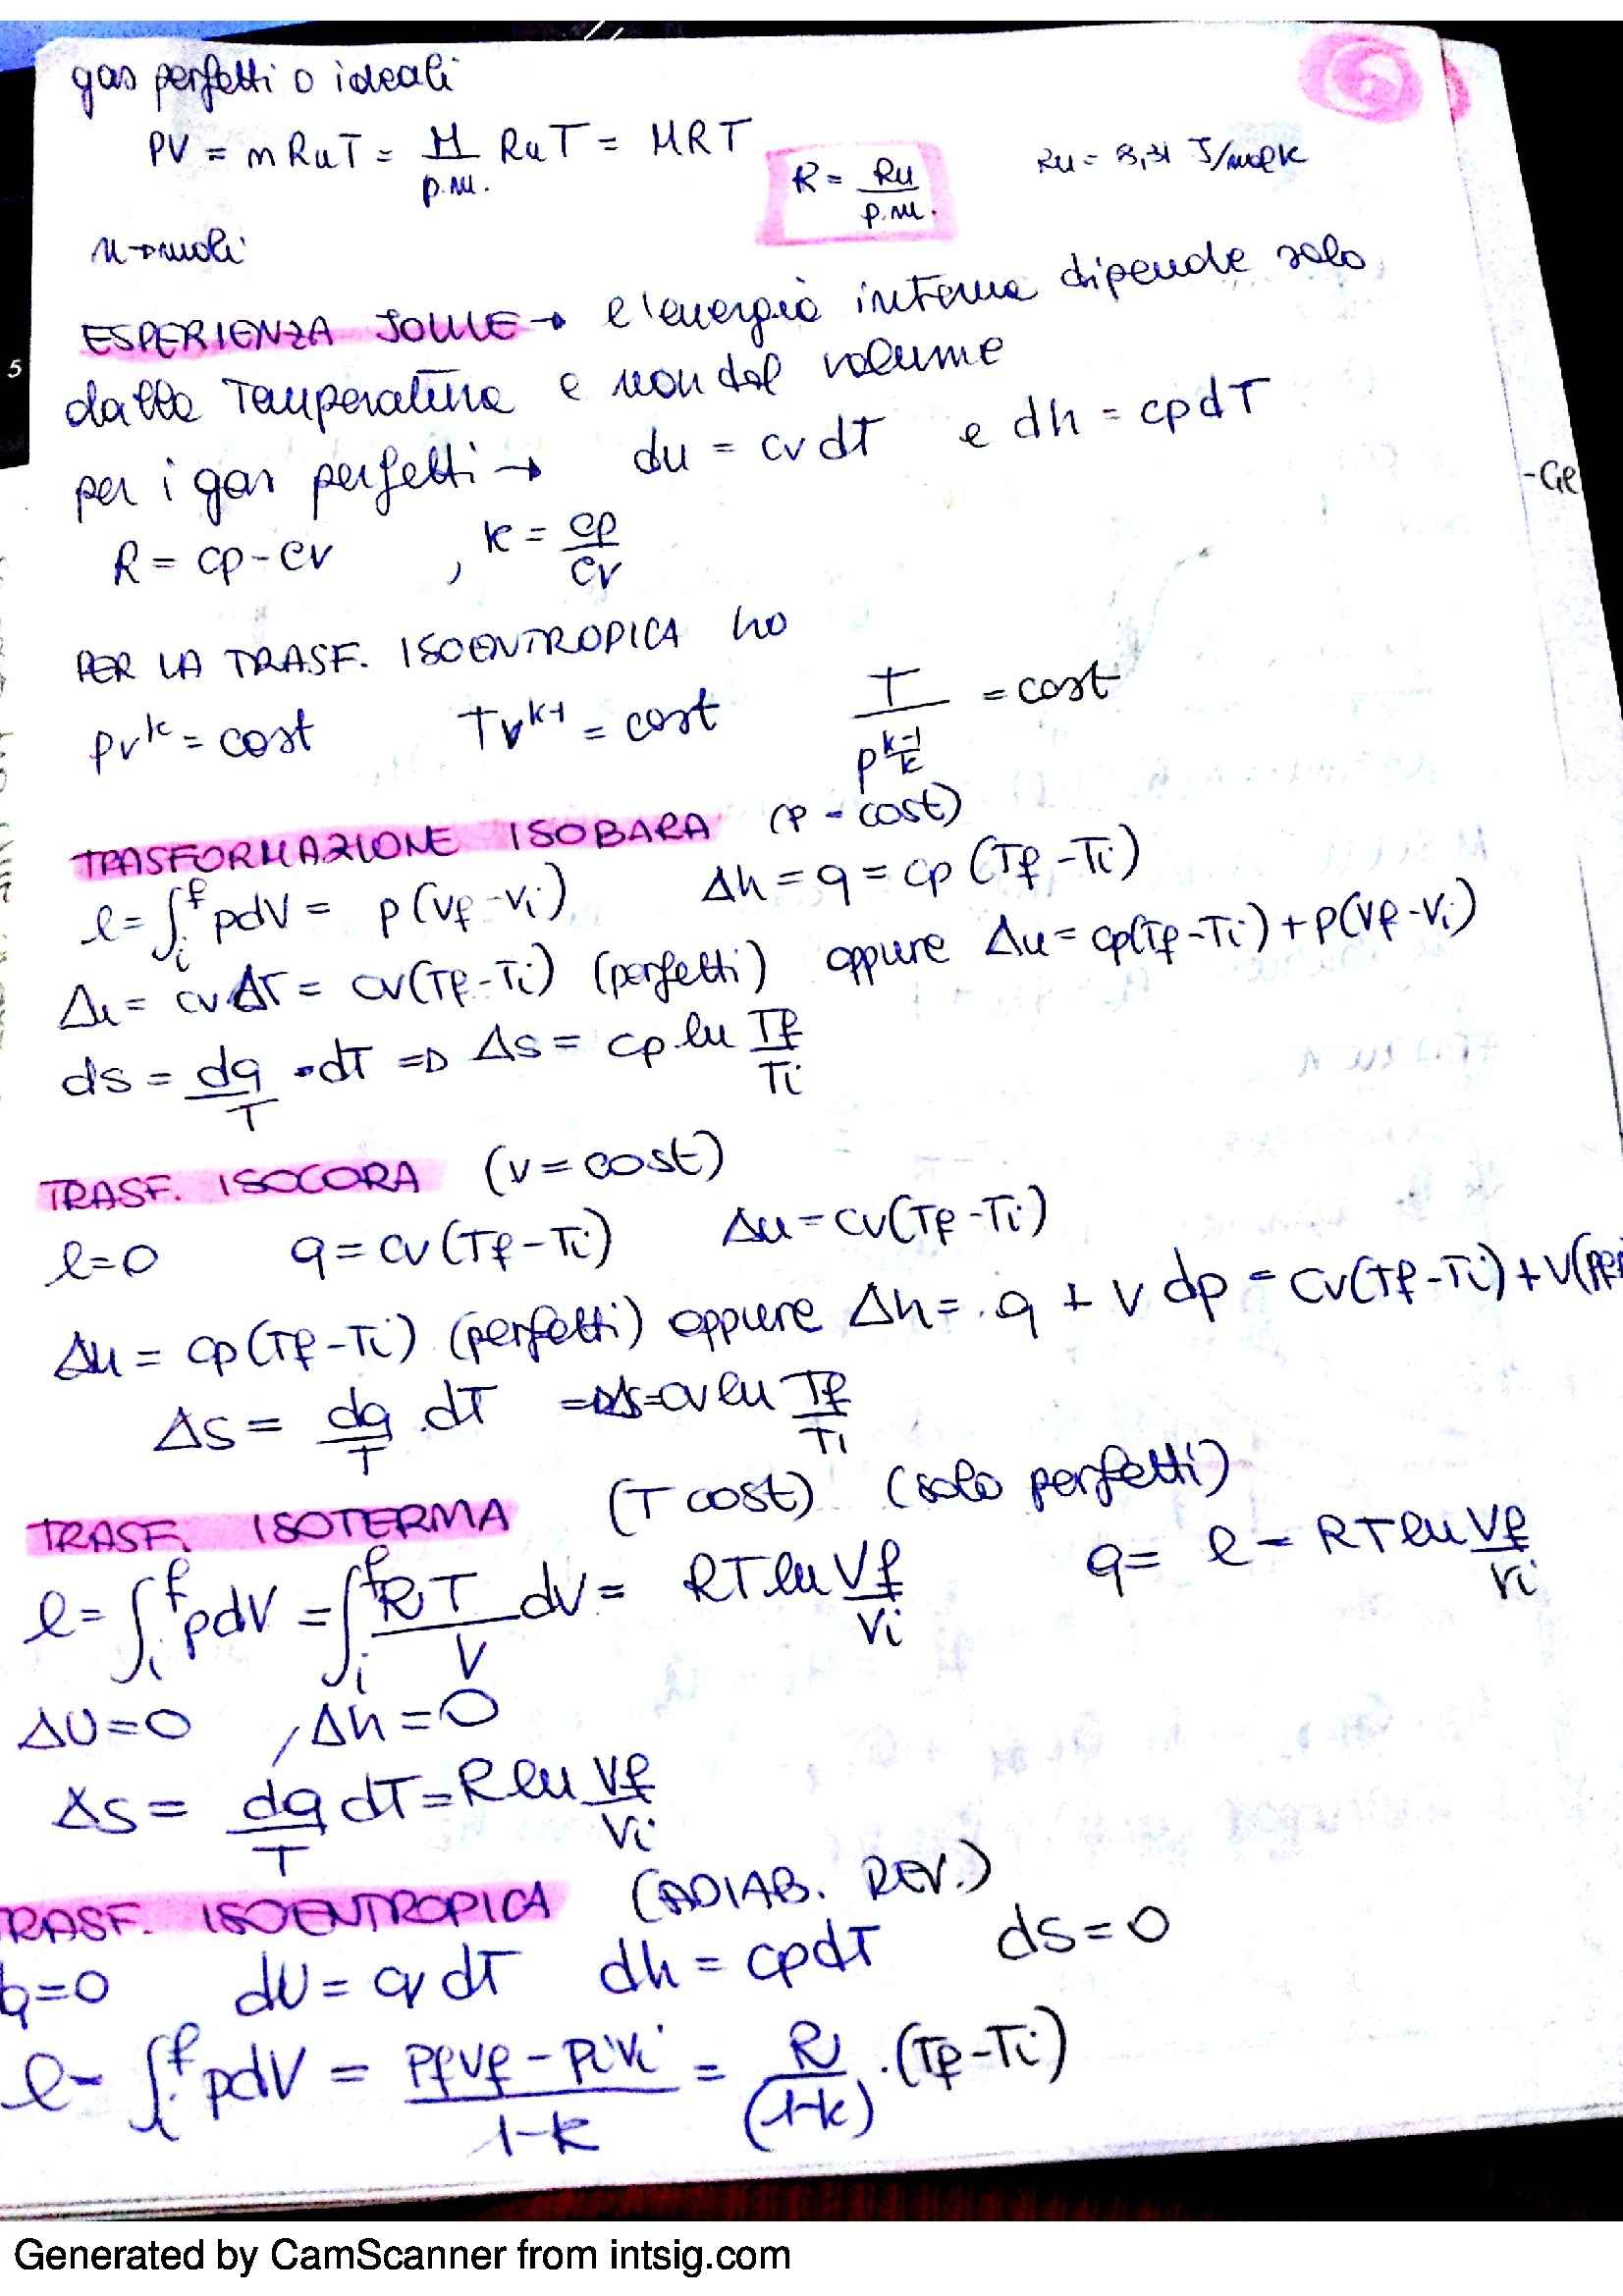 gas perfetti o ideali
6
PV = n Ru T = M/p.m. Ru T = MRT
R = Ru/p.m.
Ru = 8,31 J/molK
n → moli
ESPERIENZA JOULE → l'energia interna dipende solo
5
dalla Temperatura e non dal volume
per i gas perfetti → du = cv dT e dh = cp dT
-Ge
R = cp - cv , k = cp/cv
PER LA TRASF. ISOENTROPICA ho
Pv^k = cost Tv^k-1 = cost T/p^(k-1/k) = cost
TRASFORMAZIONE ISOBARA (P = cost)
l = ∫i^f pdV = p(Vf - Vi) Δh = q = cp (Tf - Ti)
Δu = cv ΔT = cv(Tf - Ti) (perfetti) oppure Δu = cp(Tf - Ti) + p(Vf - Vi)
ds = dq/T · dT => Δs = cp ln Tf/Ti
TRASF. ISOCORA (v = cost)
l = 0 q = cv (Tf - Ti) Δu = cv(Tf - Ti)
Δu = cp(Tf - Ti) (perfetti) oppure Δh = q + v dp = cv(Tf - Ti) + V(
ΔS = dq/T . dT => Δs = cv ln Tf/Ti
TRASF. ISOTERMA (T cost) (solo perfetti)
l = ∫i^f pdV = ∫i^f RT/V dV = RT ln Vf/Vi q = l = RT ln Vf/Vi
ΔU = 0 , Δh = 0
Δs = dq/T dT = R ln Vf/Vi
TRASF. ISOENTROPICA (ADIAB. REV.)
q = 0 dU = cv dT dh = cp dT ds = 0
l = ∫i^f pdV = PfVf - PiVi/1-k = R/(1-k) · (Tf - Ti)
Generated by CamScanner from intsig.com